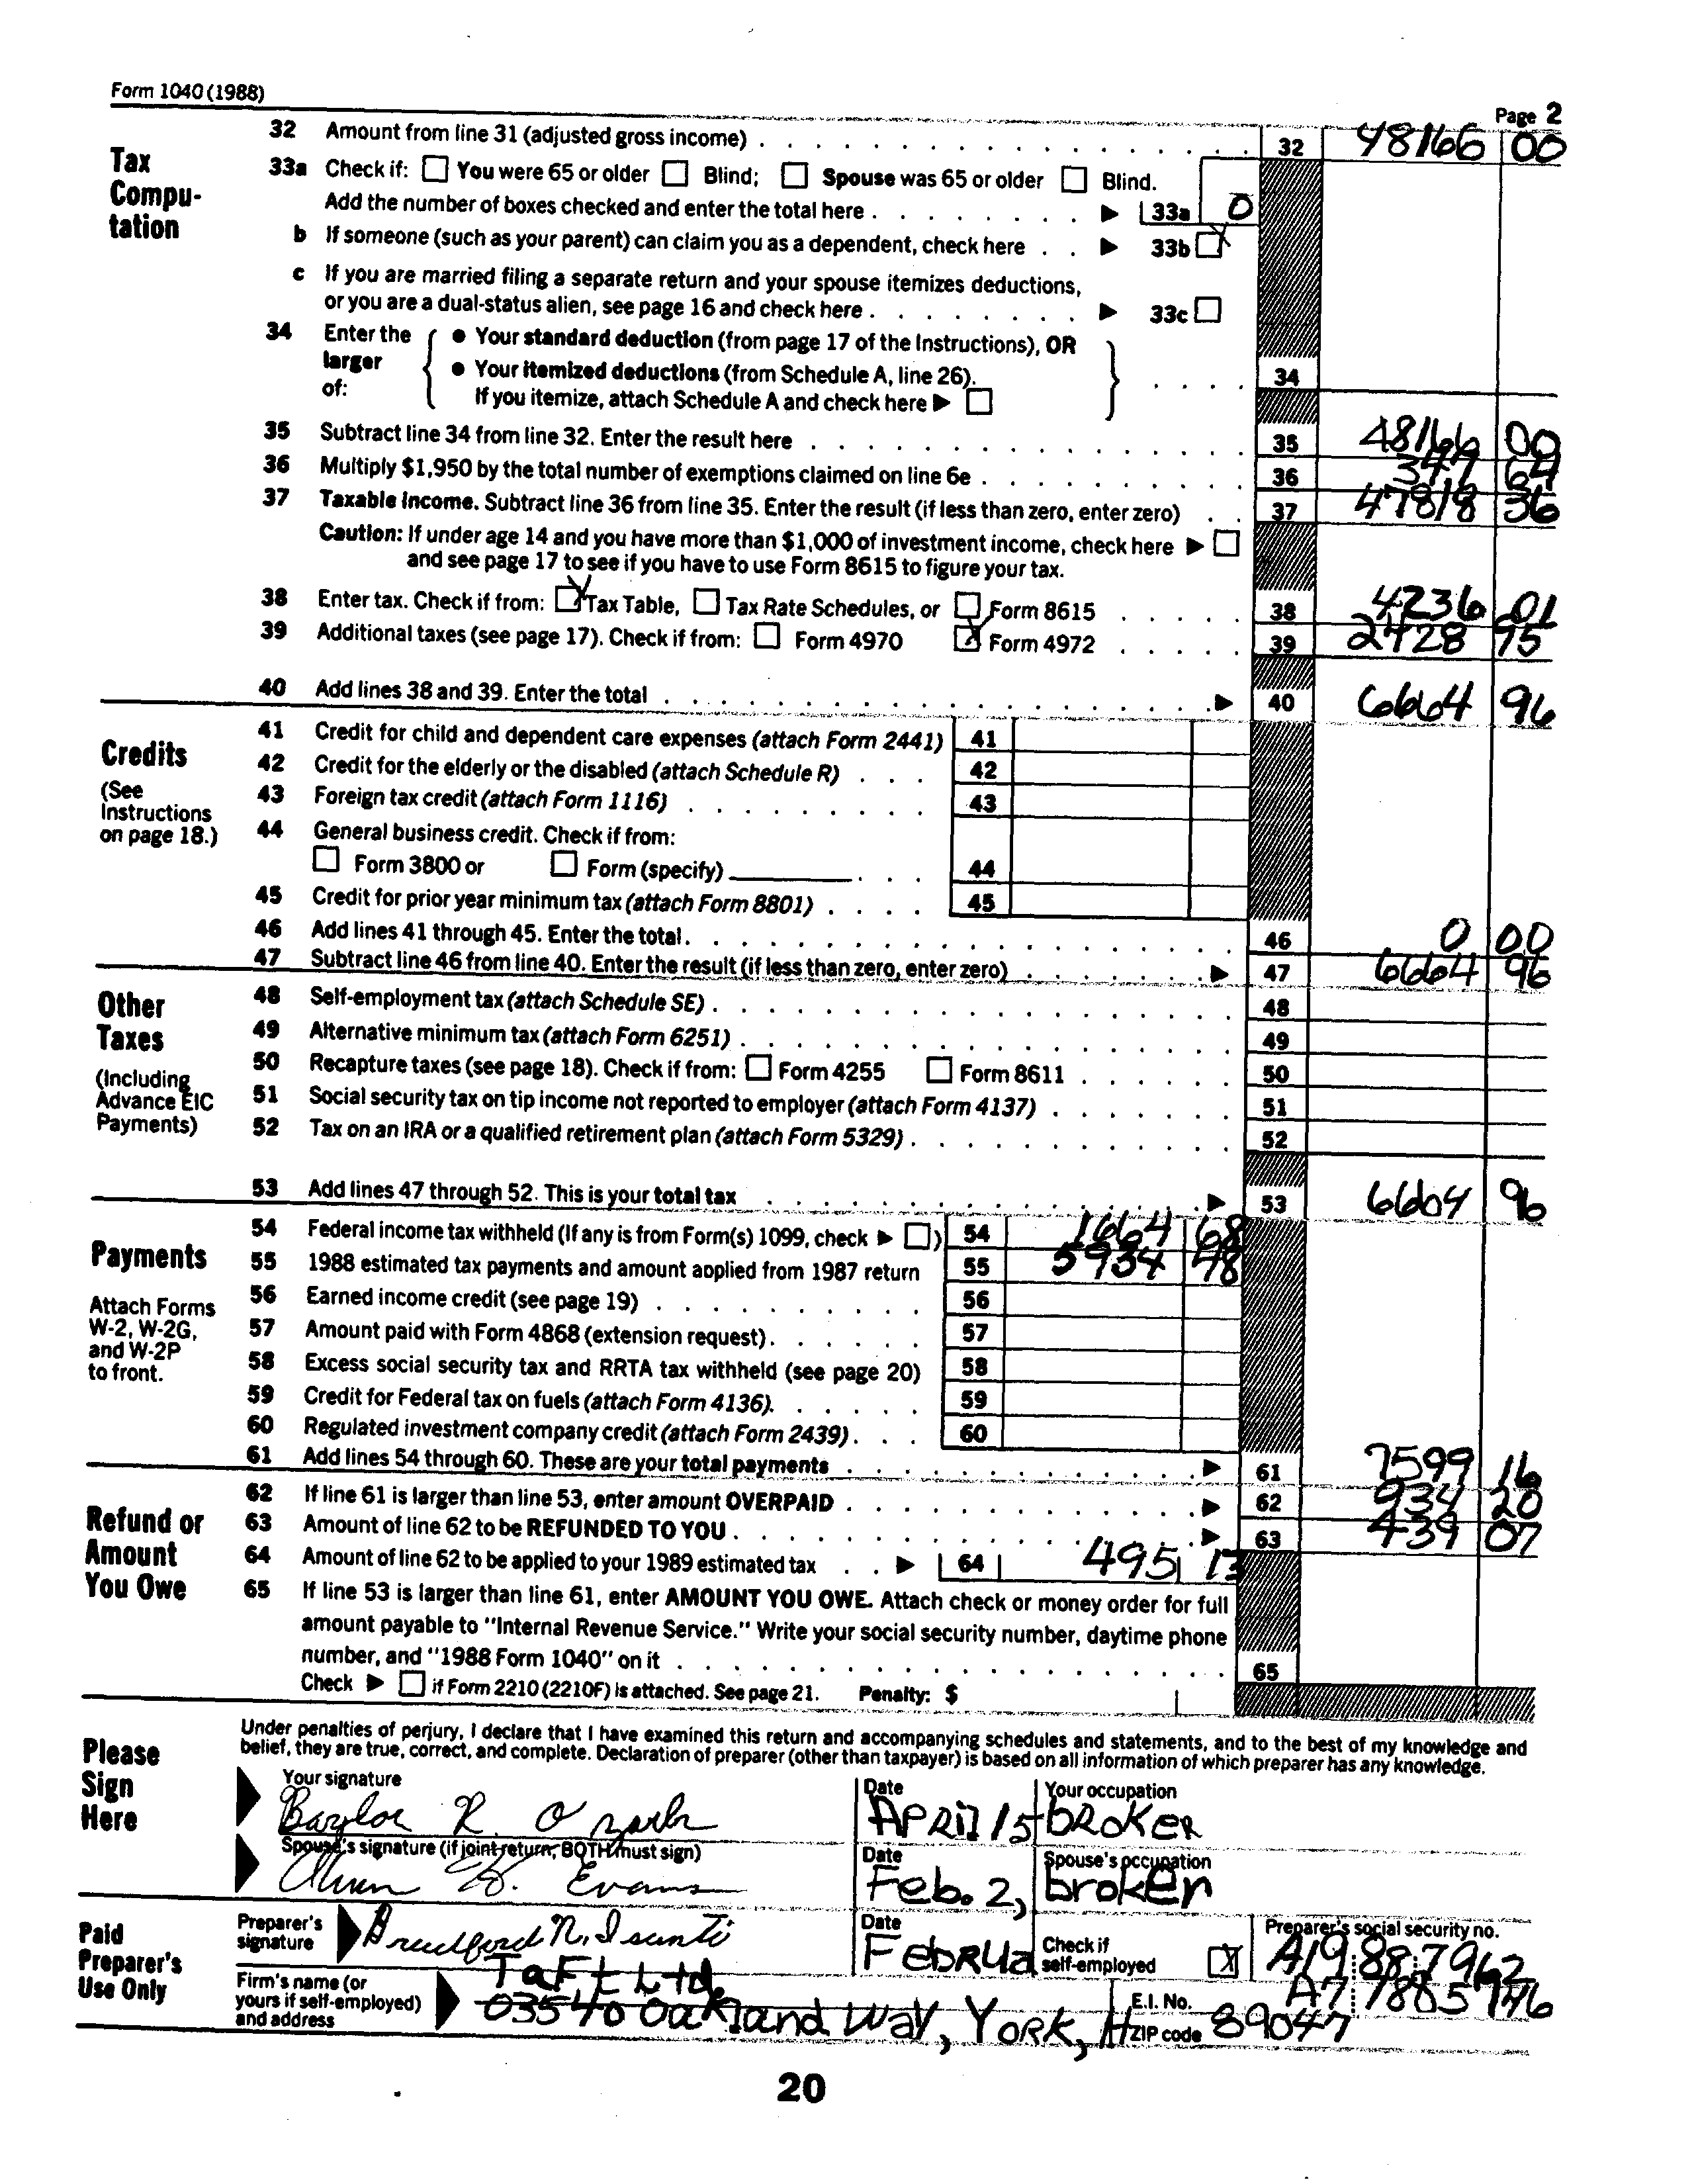 Form 1040 (1988)
Page 2
Tax Compu-tation
32 Amount from line 31 (adjusted gross income) 32 48166 00
33a Check if: You were 65 or older Blind; Spouse was 65 or older Blind.
Add the number of boxes checked and enter the total here 33a 0
b If someone (such as your parent) can claim you as a dependent, check here 33b X
c If you are married filing a separate return and your spouse itemizes deductions,
or you are a dual-status alien, see page 16 and check here 33c
34 Enter the larger of: • Your standard deduction (from page 17 of the Instructions), OR
• Your itemized deductions (from Schedule A, line 26). 34
If you itemize, attach Schedule A and check here
35 Subtract line 34 from line 32. Enter the result here 35 48166 00
36 Multiply $1,950 by the total number of exemptions claimed on line 6e 36 347 64
37 Taxable income. Subtract line 36 from line 35. Enter the result (if less than zero, enter zero) 37 47818 36
Caution: If under age 14 and you have more than $1,000 of investment income, check here
and see page 17 to see if you have to use Form 8615 to figure your tax.
38 Enter tax. Check if from: X Tax Table, Tax Rate Schedules, or Form 8615 38 4236 01
39 Additional taxes (see page 17). Check if from: Form 4970 X Form 4972 39 2428 95
40 Add lines 38 and 39. Enter the total 40 6664 96
Credits
(See Instructions on page 18.)
41 Credit for child and dependent care expenses (attach Form 2441) 41
42 Credit for the elderly or the disabled (attach Schedule R) 42
43 Foreign tax credit (attach Form 1116) 43
44 General business credit. Check if from:
Form 3800 or Form (specify) 44
45 Credit for prior year minimum tax (attach Form 8801) 45
46 Add lines 41 through 45. Enter the total. 46 0 00
47 Subtract line 46 from line 40. Enter the result (if less than zero, enter zero) 47 6664 96
Other Taxes
(Including Advance EIC Payments)
48 Self-employment tax (attach Schedule SE) 48
49 Alternative minimum tax (attach Form 6251) 49
50 Recapture taxes (see page 18). Check if from: Form 4255 Form 8611 50
51 Social security tax on tip income not reported to employer (attach Form 4137) 51
52 Tax on an IRA or a qualified retirement plan (attach Form 5329) 52
53 Add lines 47 through 52. This is your total tax 53 6664 96
Payments
Attach Forms W-2, W-2G, and W-2P to front.
54 Federal income tax withheld (If any is from Form(s) 1099, check ) 54 1664 68
55 1988 estimated tax payments and amount applied from 1987 return 55 5934 48
56 Earned income credit (see page 19) 56
57 Amount paid with Form 4868 (extension request) 57
58 Excess social security tax and RRTA tax withheld (see page 20) 58
59 Credit for Federal tax on fuels (attach Form 4136). 59
60 Regulated investment company credit (attach Form 2439) 60
61 Add lines 54 through 60. These are your total payments 61 7599 16
Refund or Amount You Owe
62 If line 61 is larger than line 53, enter amount OVERPAID 62 934 20
63 Amount of line 62 to be REFUNDED TO YOU 63 439 07
64 Amount of line 62 to be applied to your 1989 estimated tax 64 495 13
65 If line 53 is larger than line 61, enter AMOUNT YOU OWE. Attach check or money order for full
amount payable to "Internal Revenue Service." Write your social security number, daytime phone
number, and "1988 Form 1040" on it 65
Check if Form 2210 (2210F) is attached. See page 21. Penalty: $
Please Sign Here
Under penalties of perjury, I declare that I have examined this return and accompanying schedules and statements, and to the best of my knowledge and
belief, they are true, correct, and complete. Declaration of preparer (other than taxpayer) is based on all information of which preparer has any knowledge.
Your signature Date Your occupation
Baylor R. April 15 broker
Spouse's signature (if joint return, BOTH must sign) Date Spouse's occupation
Evans Feb. 2, broker
Paid Preparer's Use Only
Preparer's signature Bradford N. Isanti Date Februa Check if self-employed X Preparer's social security no. A19 88 7962
Firm's name (or yours if self-employed) and address Taft Ltd. E.I. No. A7 7885746
03540 Oakland Way, York, H ZIP code 89047
20